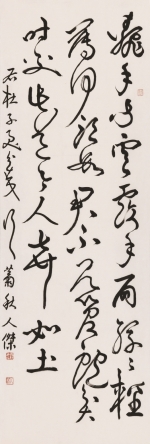 翻手作雲覆手雨紛々輕
薄何須數君不見管鮑貧
時交此道今人棄如土
右杜子美貧交行 秋人傑